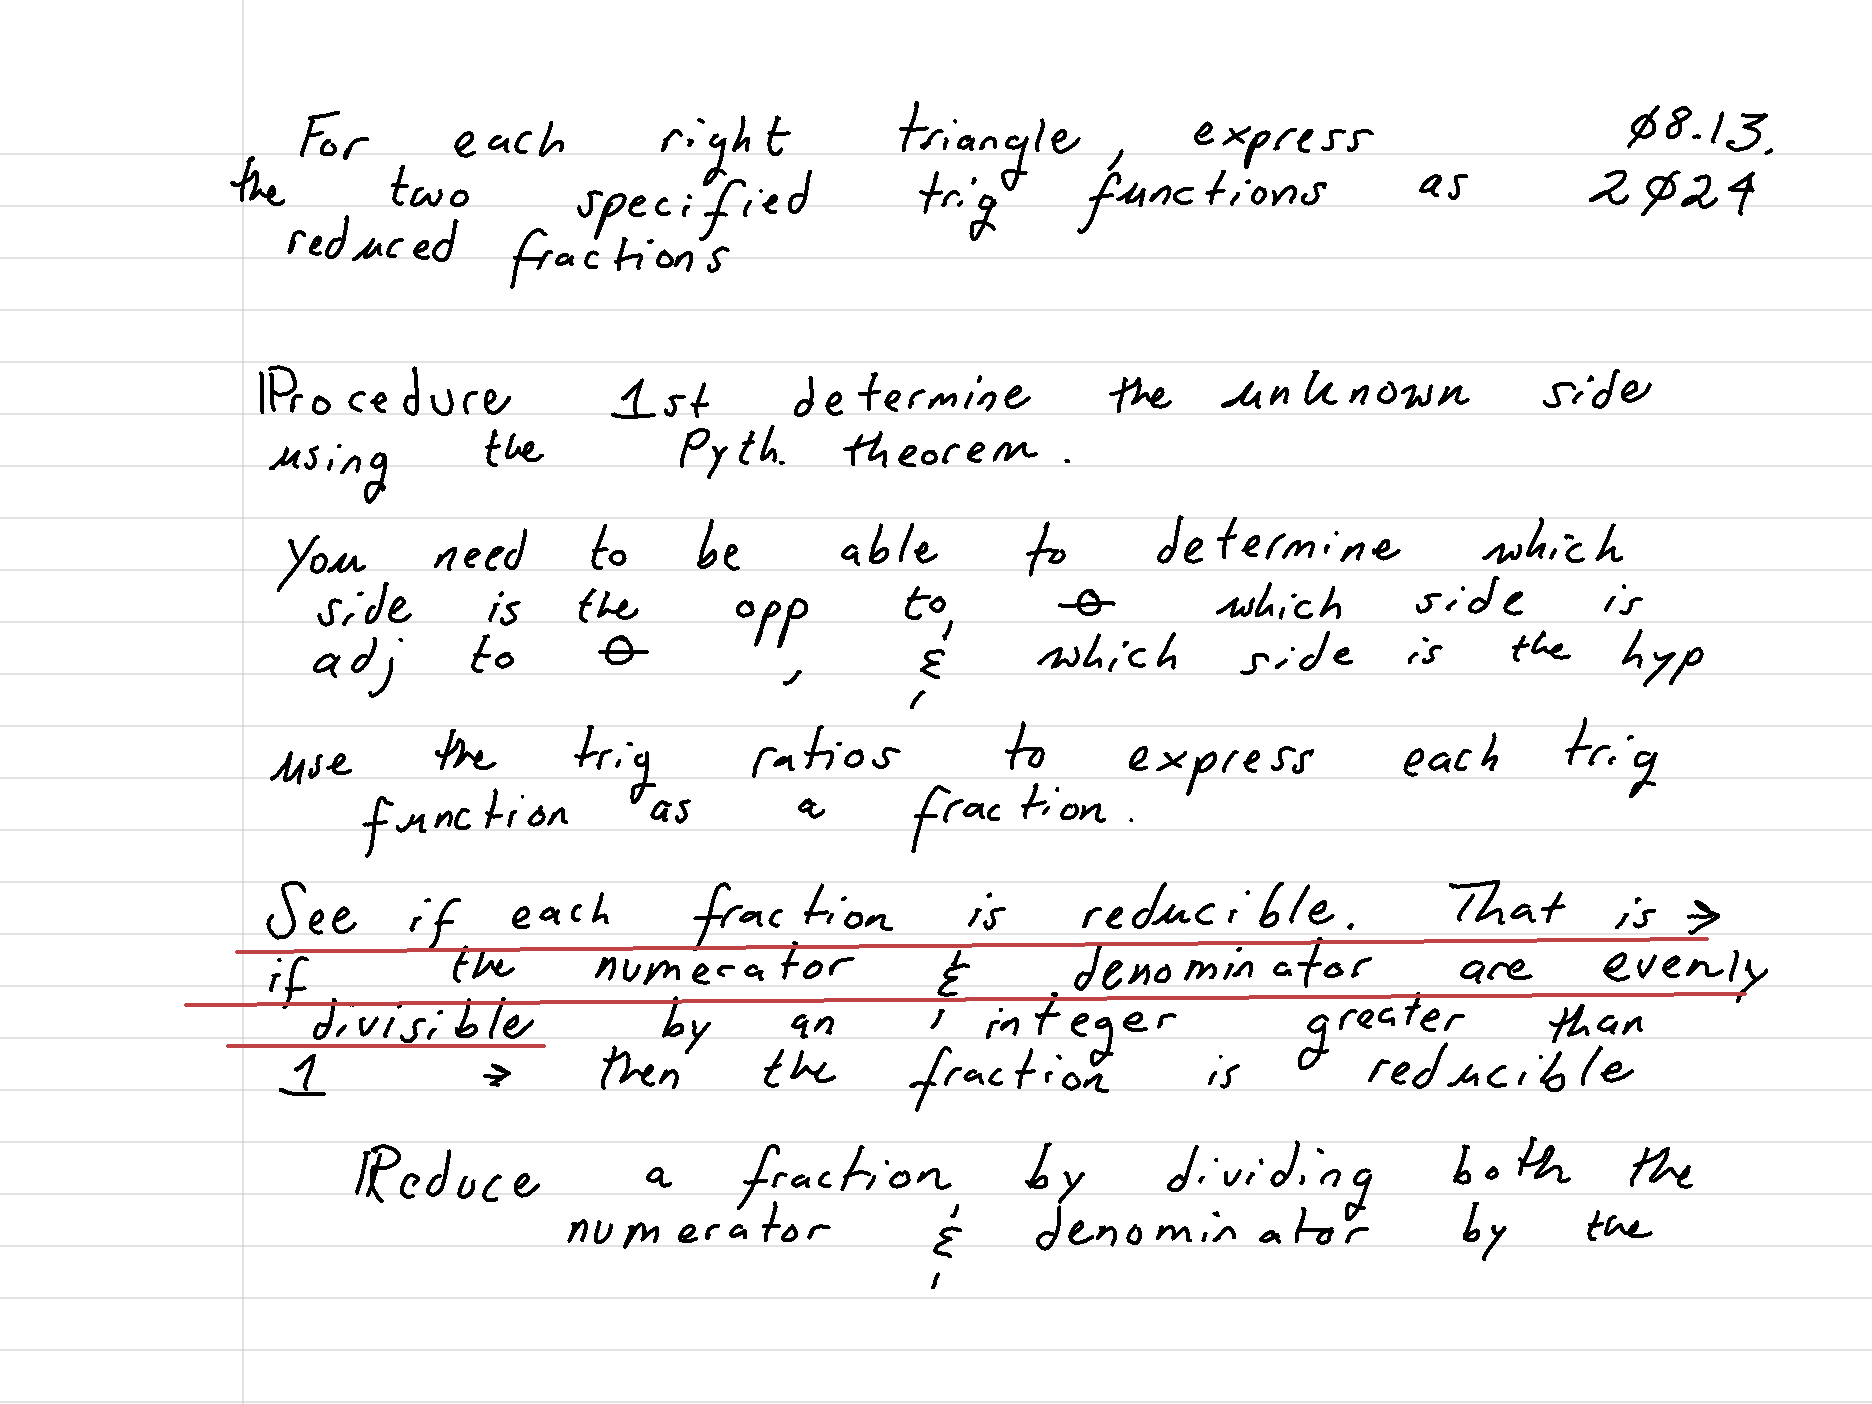 For each right triangle, express
the two specified trig functions as
reduced fractions
Ø8.13.
2Ø24
Procedure 1st determine the unknown side
using the Pyth. theorem.
You need to be able to determine which
side is the opp to, θ which side is
adj to θ , & which side is the hyp
use the trig ratios to express each trig
function as a fraction.
See if each fraction is reducible. That is →
if the numerator & denominator are evenly
divisible by an integer greater than
1 → then the fraction is reducible
Reduce a fraction by dividing both the
numerator & denominator by the